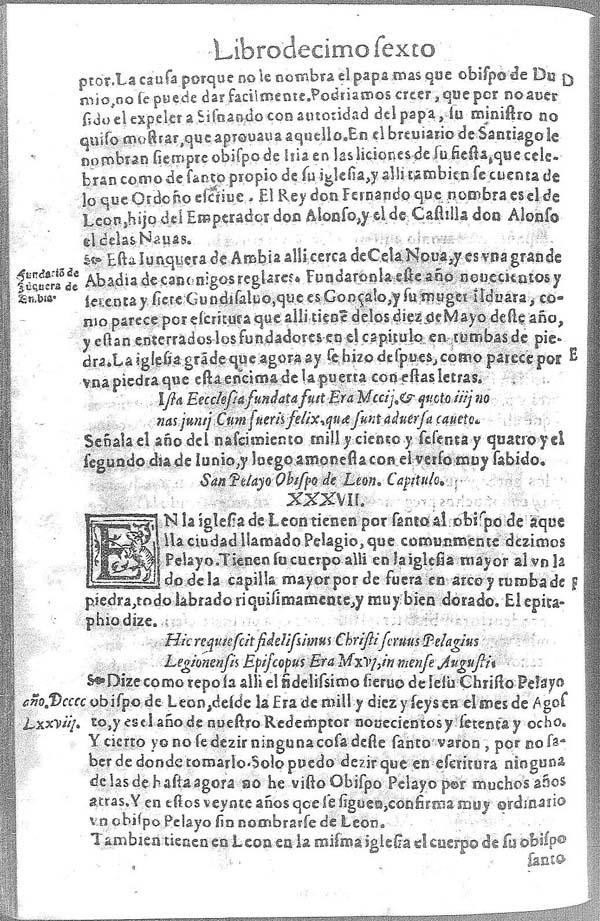 Libro decimo sexto
ptor. La causa porque no le nombra el papa mas que obispo de Du D
mio, no se puede dar facilmente. Podriamos creer, que por no auer
sido el expeler a Sisnando con autoridad del papa, su ministro no
quiso mostrar, que aprouaua aquello. En el breuiario de Santiago le
nombran siempre obispo de Iria en las liciones de su fiesta, que cele-
bran como de santo propio de su iglesia, y alli tambien se cuenta de
lo que Ordoño escriue. El Rey don Fernando que nombra es el de
Leon, hijo del Emperador don Alonso, y el de Castilla don Alonso
el delas Nauas.
Esta Iunquera de Ambia alli cerca de Cela Noua, y es vna grande
Fundatiō de
Iūquera de
Enbia.
Abadia de canonigos reglares. Fundaronla este año nouecientos y
setenta y siete Gundisaluo, que es Gonçalo, y su muger Ilduara, co-
mo parece por escritura que alli tienē delos diez de Mayo deste año,
y estan enterrados los fundadores en el capitulo en tumbas de pie-
dra. La iglesia grāde que agora ay se hizo despues, como parece por E
vna piedra que esta encima de la puerta con estas letras.
Ista Eecclesia fundata fuit Era Mccij. & quoto iiij no
nas junij Cum fueris felix. quæ sunt aduersa caueto.
Señala el año del nascimiento mill y ciento y sesenta y quatro y el
segundo dia de Iunio, y luego amonesta con el verso muy sabido.
San Pelayo Obispo de Leon. Capitulo.
XXXVII.
EN la iglesia de Leon tienen por santo al obispo de aque
lla ciudad llamado Pelagio, que comunmente dezimos
Pelayo. Tienen su cuerpo alli en la iglesia mayor al vn la
do de la capilla mayor por de fuera en arco y tumba de F
piedra, todo labrado riquisimamente, y muy bien dorado. El epita-
phio dize.
Hic requiescit fidelissimus Christi seruus Pelagius
Legionensis Episcopus Era Mxvj, in mense Augusti.
Dize como reposa alli el fidelissimo sieruo de Iesu Christo Pelayo
año. Dcccc
Lxxviij.
obispo de Leon, desde la Era de mill y diez y seys en el mes de Agos
to, y es el año de nuestro Redemptor nouecientos y setenta y ocho.
Y cierto yo no se dezir ninguna cosa deste santo varon, por no sa-
ber de donde tomarlo. Solo puedo dezir que en escritura ninguna
de las de hasta agora no he visto Obispo Pelayo por muchos años
atras. Y en estos veynte años qoe se siguen, confirma muy ordinario
vn obispo Pelayo sin nombrarse de Leon.
Tambien tienen en Leon en la misma iglesia el cuerpo de su obispo
santo